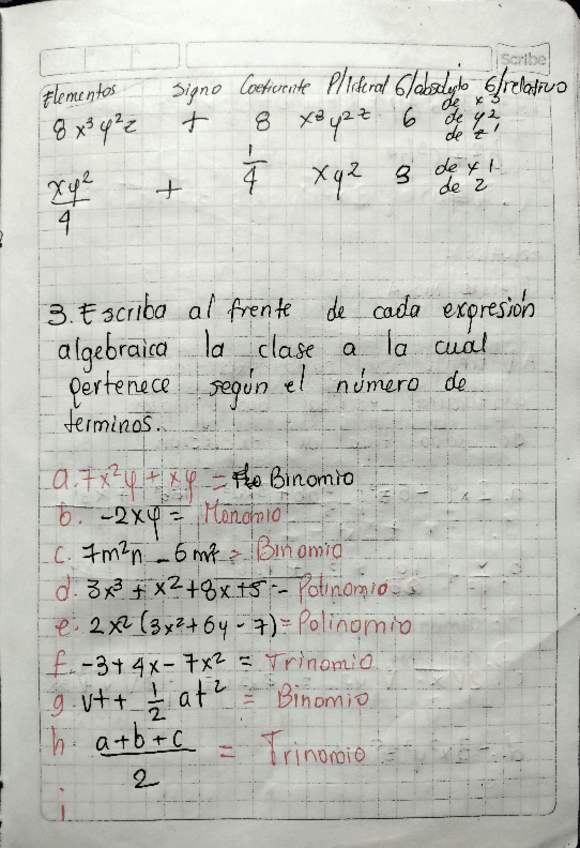 Scribe
Elementos Signo Coeficiente P/literal G/absoluto G/relativo
8x³y²z + 8 x³y²z 6 de x3
de y2
de z1
xy²/4 + 1/4 xy² 3 de x1
de 2
3. Escriba al frente de cada expresión
algebraica la clase a la cual
pertenece según el número de
terminos.
a. 7x²y + xy = Binomio
b. -2xy = Monomio
c. 7m²n - 6m² = Binomio
d. 3x³ + x² + 8x + 5 = Polinomio
e. 2x² (3x² + 6y - 7) = Polinomio
f. -3 + 4x - 7x² = Trinomio
g. vt + 1/2 at² = Binomio
h. a+b+c/2 = Trinomio
i